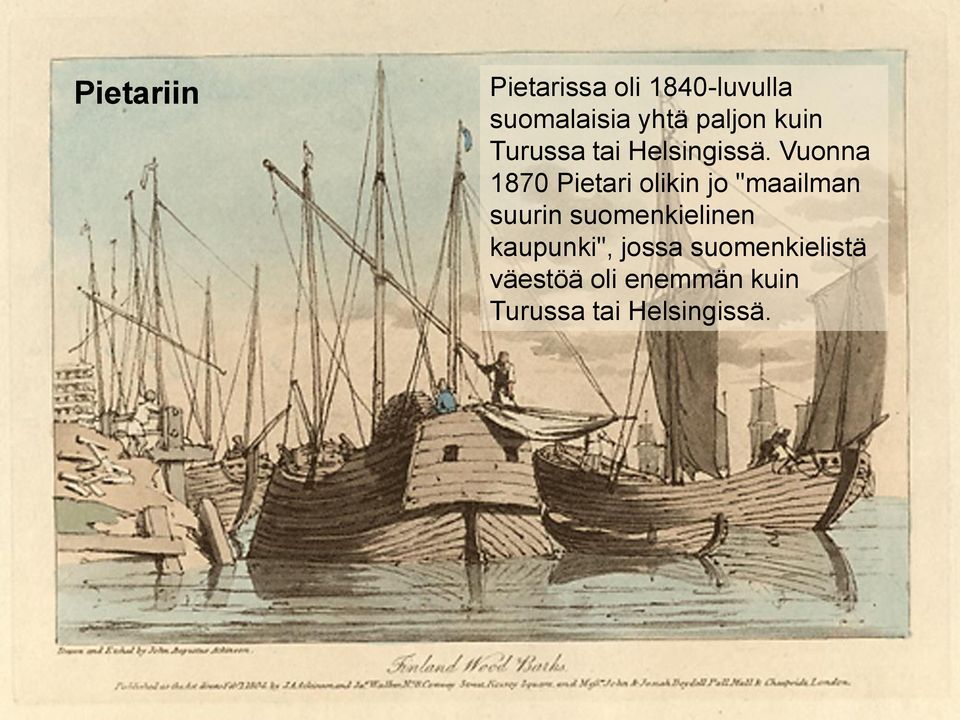 Pietariin
Pietarissa oli 1840-luvulla
suomalaisia yhtä paljon kuin
Turussa tai Helsingissä. Vuonna
1870 Pietari olikin jo "maailman
suurin suomenkielinen
kaupunki", jossa suomenkielistä
väestöä oli enemmän kuin
Turussa tai Helsingissä.
Drawn and Etched by John Augustus Atkinson.
Finland Wood Barks.
Published as the Act directs 1804, by J.A. Atkinson, and Conway Street, Fitzroy Square, and Mess. John & Josiah Boydell, Pall Mall & Cheapside, London.